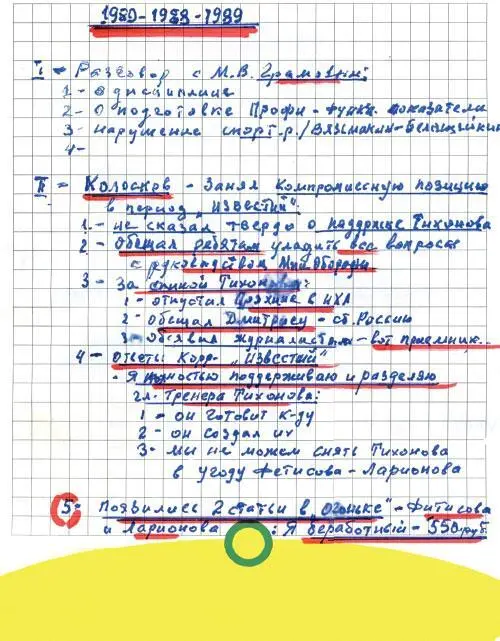 1980-1983-1989
I = Разговор с М.В. Грамовым:
1 - о дисциплине
2 - О подготовке Профи - функ. показатели
3 - нарушение спорт.р./Вязьмикин-Белошейкин
4 -
II = Колосков - Занял компромиссную позицию
в период „Известий"
1 - не сказал твердо о поддержке Тихонова
2 - Обещал ребятам уладить все вопросы
с руководством Мин.Обороны
3 - За спиной Тихонова:
1 - отпустил Пряхина в НХЛ
2 - обещал Дмитриеву - сб. России
3 - Объявил журналистам - вот приемник...
4 - Ответы Корр. „Известий"
- Я полностью поддерживаю и разделяю
гл. Тренера Тихонова:
1 - он готовит к-ду
2 - он создал их
3 - мы не можем снять Тихонова
в угоду Фетисова - Ларионова
5 - Появились 2 статьи в „Огоньке" - Фитисова
и Ларионова : Я безработный - 550 руб.